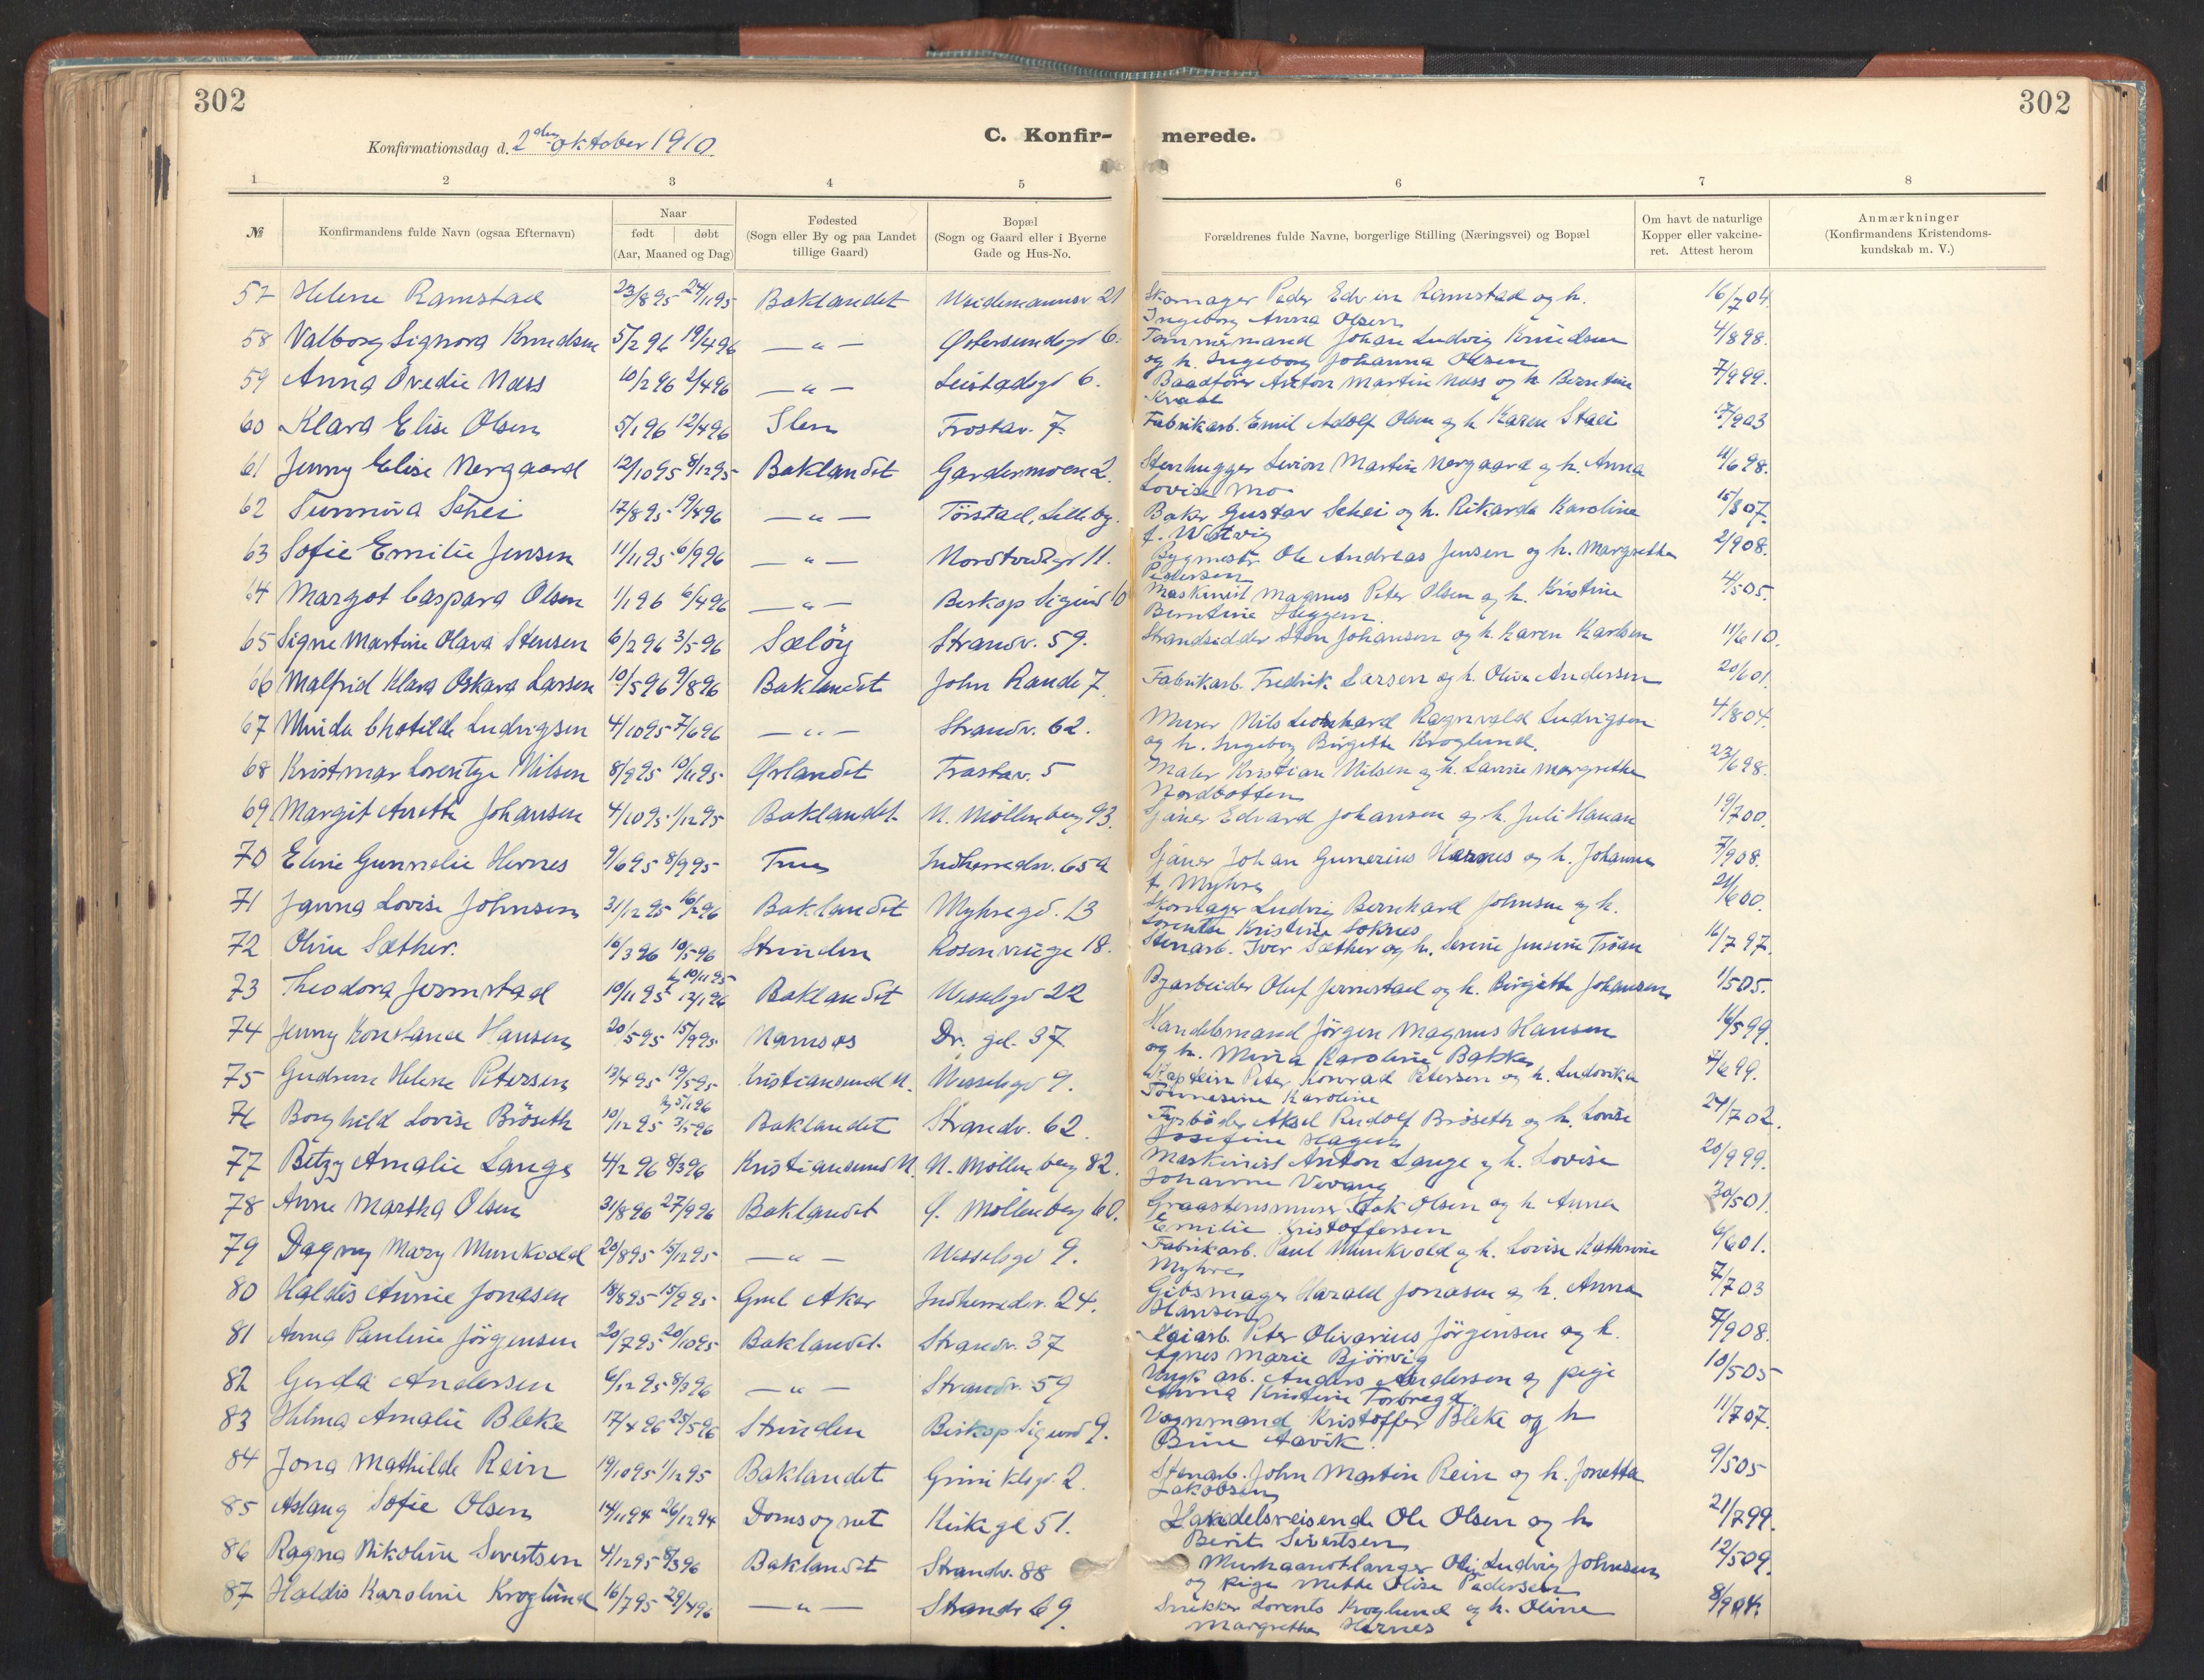 302
302
C. Konfir- merede.
Konfirmationsdag d. 2den oktober 1910
1 2 3 4 5 6 7 8
№ Konfirmandens fulde Navn (ogsaa Efternavn) Naar født døbt (Aar, Maaned og Dag) Fødested (Sogn eller By og paa Landet tillige Gaard) Bopæl (Sogn og Gaard eller i Byerne Gade og Hus-No. Forældrenes fulde Navne, borgerlige Stilling (Næringsvei) og Bopæl Om havt de naturlige Kopper eller vakcineret. Attest herom Anmærkninger (Konfirmandens Kristendomskundskab m. V.)
57 Helene Ramstad 23/8 95 24/11 95 Baklandet Weidemannsv 21 Skomager Peder Edvin Ramstad og h. 16/7 04
Ingeborg Anna Olsen
58 Valborg Signora Knudsen 5/2 96 19/4 96 — " — Østersundsgd 6. Tømmermand Johan Ludvig Knudsen 4/8 98.
og h. Ingeborg Johanna Olsen
59 Anna Ovedie Næss 10/2 96 2/4 96 — " — Leistadsgd 6. Baadfører Anton Martin Næss og h. Berntine 7/9 99.
60 Klara Elise Olsen 5/1 96 12/4 96 Ilen Frostav. 7. Fabrikarb. Emil Adolf Olsen og h. Karen
61 Jenny Elise Nergaard 12/10 95 8/12 95 Baklandet Gardermoen 2. Stenhugger Martin Nergaard og h. Anna 4/6 98.
Lovise Mo
62 Sunniva Schei 17/8 95 19/4 96 — " — Lilleby. Baker Gustav Schei og h. Rikarda Karoline 15/8 07.
63 Sofie Emilie Jensen 11/11 95 6/9 96 — " — 11. Bygmestr Ole Andreas Jensen og h. Margrethe 2/9 08.
Pedersen
64 Margot Caspara Olsen 1/1 96 6/4 96 — " — Biskop Sigurd 10 Maskinist Magnus Peter Olsen og h. Kristine 4/5 05.
Berntine Heggem.
65 Signe Martine Olava Stensen 6/2 96 3/5 96 Sæløy Strandv. 59. Strandsidder Sten Johansen og h. Karen Karlsen 11/6 10.
66 Malfrid Klara Oskara Larsen 10/5 96 9/8 96 Baklandet John Rande 7. Fabrikarb. Fredrik Larsen og h. Oline Andersen 20/6 01.
67 Chatilde Ludvigsen 4/10 95 7/6 96 — " — Strandv. 62. Murer Nils Leonhard Ragnvald Ludvigsen 4/8 04.
og h. Ingeborg Birgitte Kroglund.
68 Kristmar Lorentze Nilsen 8/9 95 10/11 95 Ørlandet 5 Maler Kristian Nilsen og h. Lavine Margrethe 23/6 98.
Nordbotten
69 Margit Anette Johansen 4/10 95 1/12 95 Baklandet N. Möllenberg 93. Sjauer Edvard Johansen og h. Juli 19/7 00.
70 Gunnelie Hernes 9/6 95 8/9 95 Indherredsv. 65a Sjauer Johan Gunerius Hernes og h. Johanne 7/9 08.
f. Myhre
71 Janna Lovise Johnsen 31/12 95 16/2 96 Baklandet Myhregd. 13 Skomager Ludvig Bernhard Johnsen og h. 21/6 00.
Lorentse Kristine Soknes
72 Oline Sæther. 16/3 96 10/5 96 Strinden 18. Stenarb. Iver Sæther og h. Serine Jensine Tröan 16/7 97.
h 10/11 95
73 Theodora Jermstad 10/11 95 12/1 96 Baklandet Wesselsgd 22 Byarbeider Oluf Jermstad og h. Birgitte Johansen 1/5 05.
74 Jenny Konstance Hansen 20/5 95 15/9 95 Namsos Dr. gd. 37 Handelsmand Jörgen Magnus Hansen 16/5 99.
og h. Mina Karoline Bakke
75 Gudrun Helene Petersen 13/4 95 19/5 95 Kristiansund N. Wesselsgd 9. Kaptein Peter Konrad Petersen og h. Ludovika 7/6 99.
Tönnesine Karoline
h 5/1 96
76 Borghild Lovise Bröseth 10/12 95 3/5 96 Baklandet Strandv. 62. Fyrböder Aksel Rudolf Bröseth og h. Lovise 24/7 02.
Josefine Hagen
77 Betzy Amalie Lange 4/2 96 8/3 96 Kristiansund N. N. Möllenberg 82. Maskinist Anton Lange og h. Lovise 20/9 99.
Johanne Vevang
78 Anne Martha Olsen 31/8 96 27/9 96 Baklandet Ø. Möllenberg 60. Graastensmurer Olsen og h. Anna 30/5 01.
Emilie Kristoffersen
79 Dagny Mary Munkvold 20/8 95 15/12 95 — " — Wesselsgd 9. Fabrikarb. Paul Munkvold og h. Lovise Kathrine 6/6 01.
Myhre
80 Haldis Annie Jonasen 18/8 95 15/9 95 Gml Aker Indherredsv. 24. Gibsmager Harald Jonasen og h. Anna 7/7 03
Hansen
81 Anna Pauline Jörgensen 20/7 95 20/10 95 Baklandet Strandv. 37 Kaiarb. Peter Olivarius Jörgensen og h. 7/9 08.
Agnes Marie Björvig
82 Gerda Andersen 6/12 95 8/3 96 — " — Strandv. 59 arb. Anders Andersen og pige 10/5 05
Anna Kristine Torbregd
83 Hilma Amalie Bleke 17/4 96 25/5 96 Strinden Biskop Sigurd 9. Vognmand Kristoffer Bleke og h 11/7 07.
Aavik.
84 Jona Mathilde Rein 19/10 95 1/12 95 Baklandet 2. Stenarb. John Martin Rein og h. Jonetta 9/5 05
Jakobsen
85 Aslaug Sofie Olsen 14/11 94 26/12 94 Domsognet Kirkegt 51. Handelsreisende Ole Olsen og h 21/7 99.
Berit Sivertsen
86 Ragna Nikoline Sivertsen 4/12 95 8/3 96 Baklandet Strandv. 88 Murhaandlanger Ludvig Johnsen 12/5 09.
og pige Mette Olise Pedersen
87 Haldis Karoline Kroglund 16/7 95 29/4 96 — " — Strandv 69. Snekker Lorents Kroglund og h. Oline 8/9 04.
Margrethe Hernes